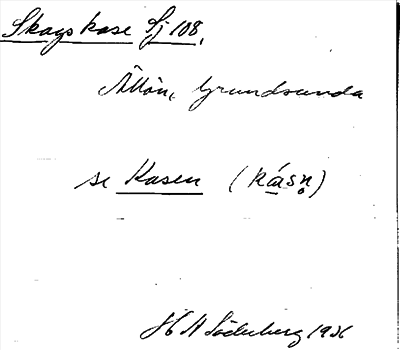 Skags kase Sj 108.
Ällön, Grundsunda
se Kasen (kásn̥)
H A Söderberg 1926